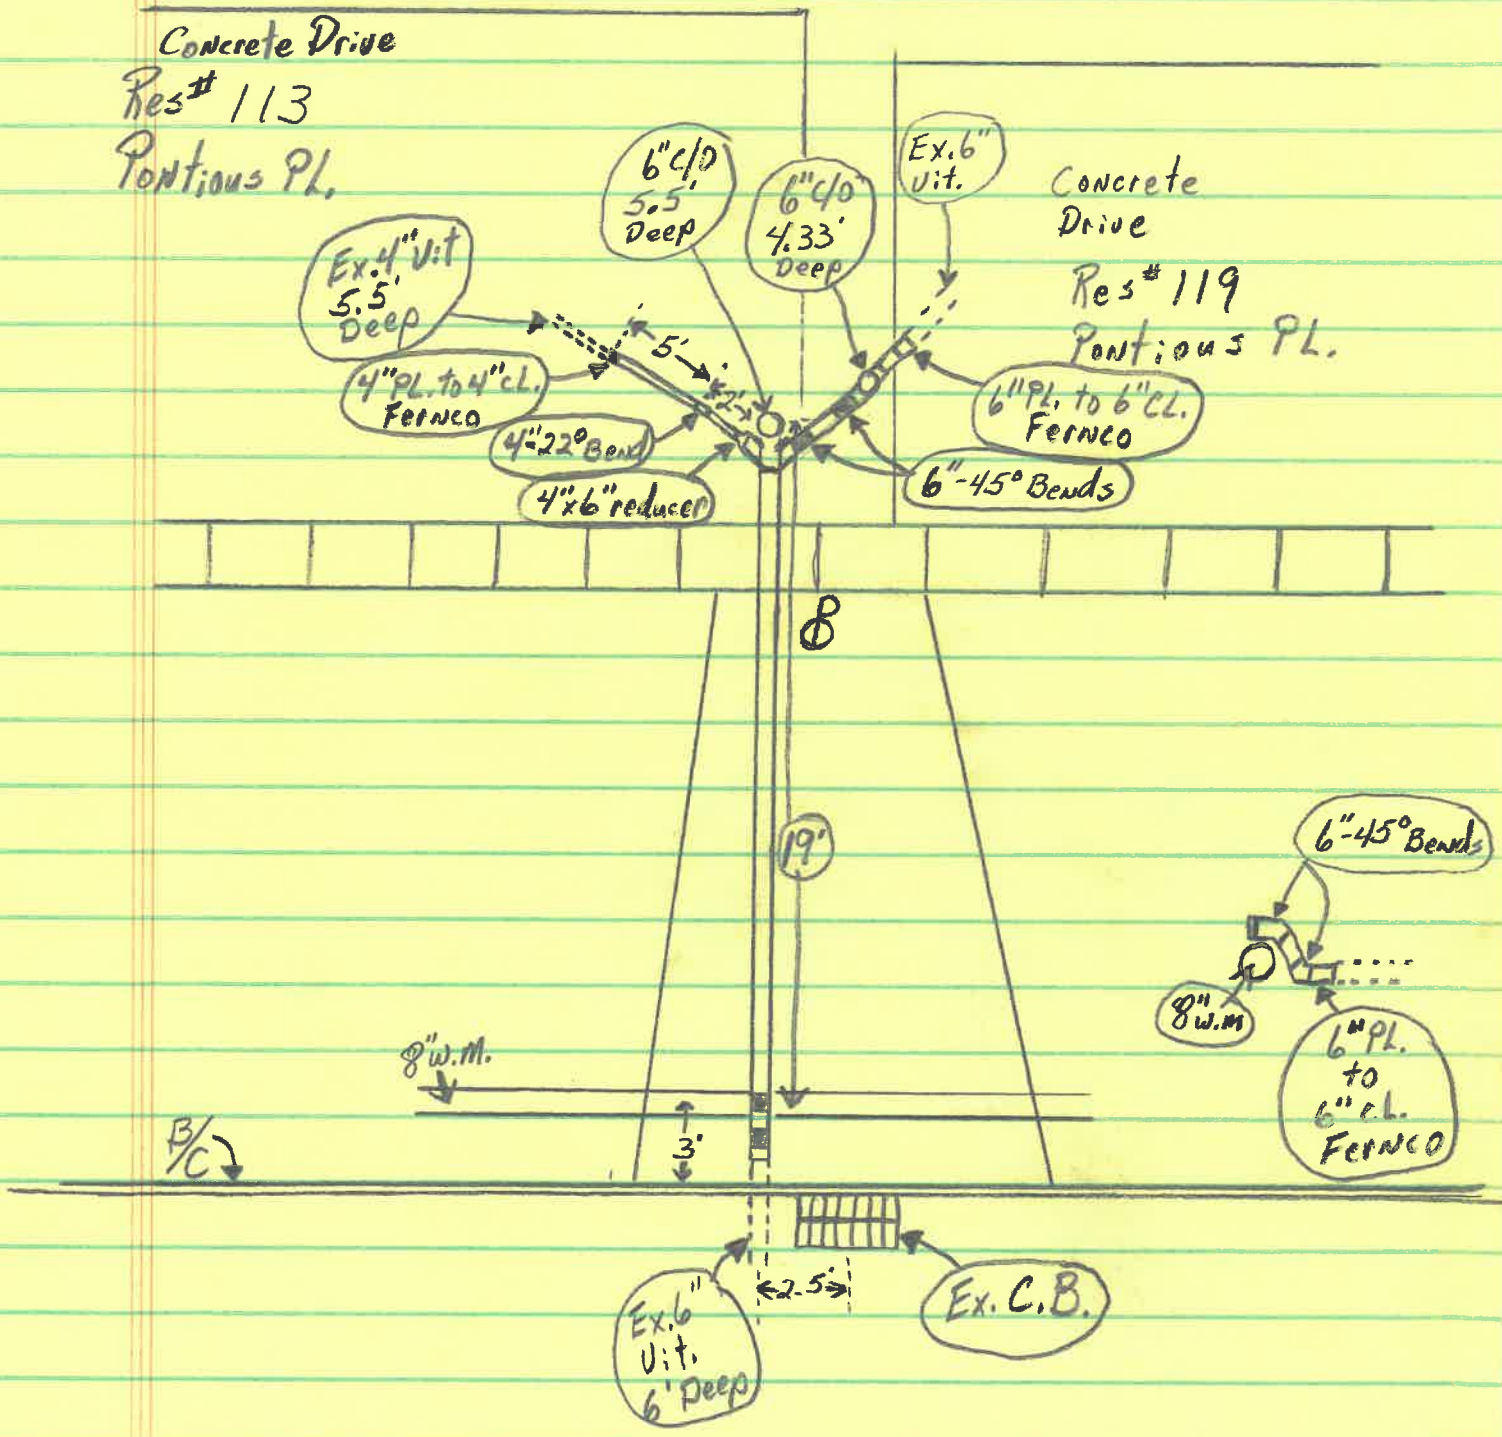 Concrete Drive
Res# 113
Pontious PL.
6" C/O
5.5'
Deep
6" C/O
4.33'
Deep
Ex. 6"
Vit.
Concrete
Drive
Res# 119
Pontious PL.
Ex. 4" Vit
5.5'
Deep
5'
2'
4" PL. to 4" CL.
Fernco
4"-22° Bend
4"x6" reducer
6" PL. to 6" CL.
Fernco
6"-45° Bends
19'
6"-45° Bends
8"
W.M
6" PL.
to
6" CL.
Fernco
8" W.M.
3'
B/C
2.5'
Ex. C.B.
Ex. 6"
Vit.
6' Deep